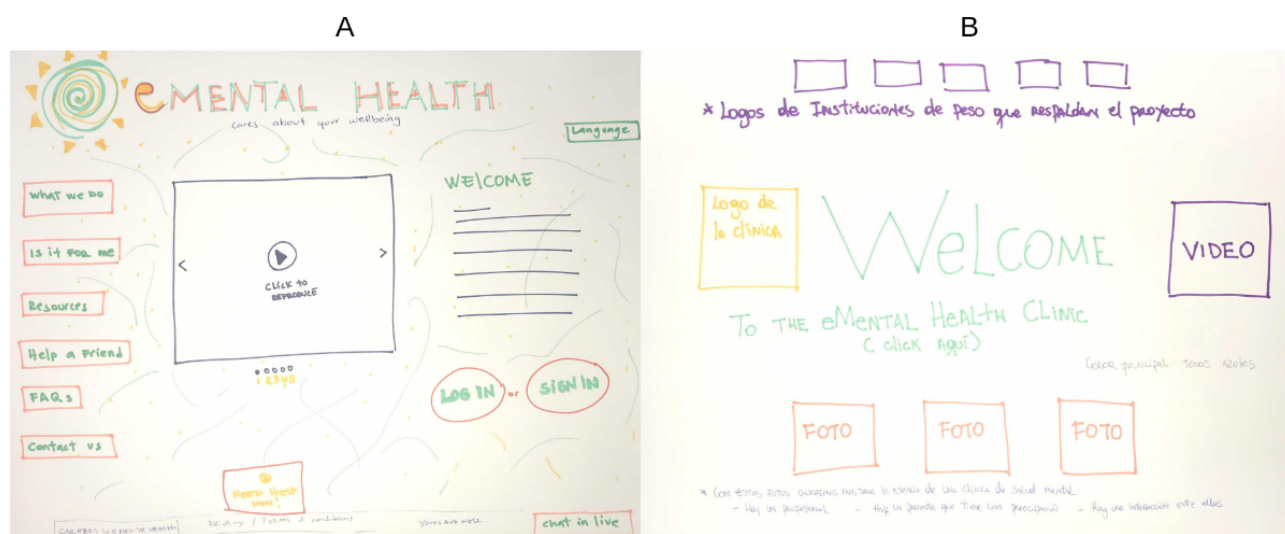 A
B
eMENTAL HEALTH
cares about your wellbeing
Language
What we DO
Is it FOR me
Resources
Help a Friend
FAQs
Contact us
CLICK to
REPRODUCE
1 2 3 4 5
WELCOME
LOG IN or SIGN IN
Need Help
Now!
Privacy / Terms & conditions
chat in live
* Logos de Instituciones de peso que respaldan el proyecto
Logo de
la clínica
WELCOME
VIDEO
TO THE eMENTAL HEALTH CLINIC
( click AQUÍ)
Color principal: Tonos Azules
FOTO
FOTO
FOTO
* CON ESTAS FOTOS queremos mostrar la esencia de una clínica de Salud Mental
- Hay un profesional - Hay un paciente que tiene una preocupación - Hay una interacción entre ellos